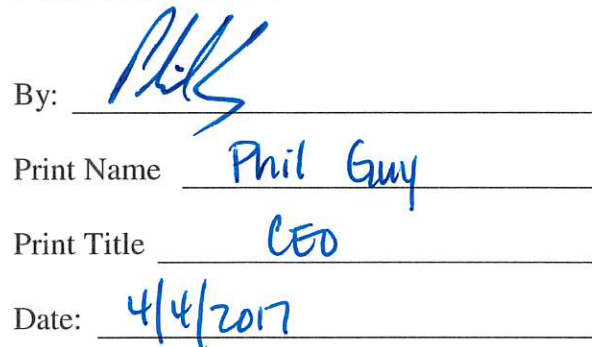 By: Phil
Print Name Phil Guy
Print Title CEO
Date: 4/4/2017